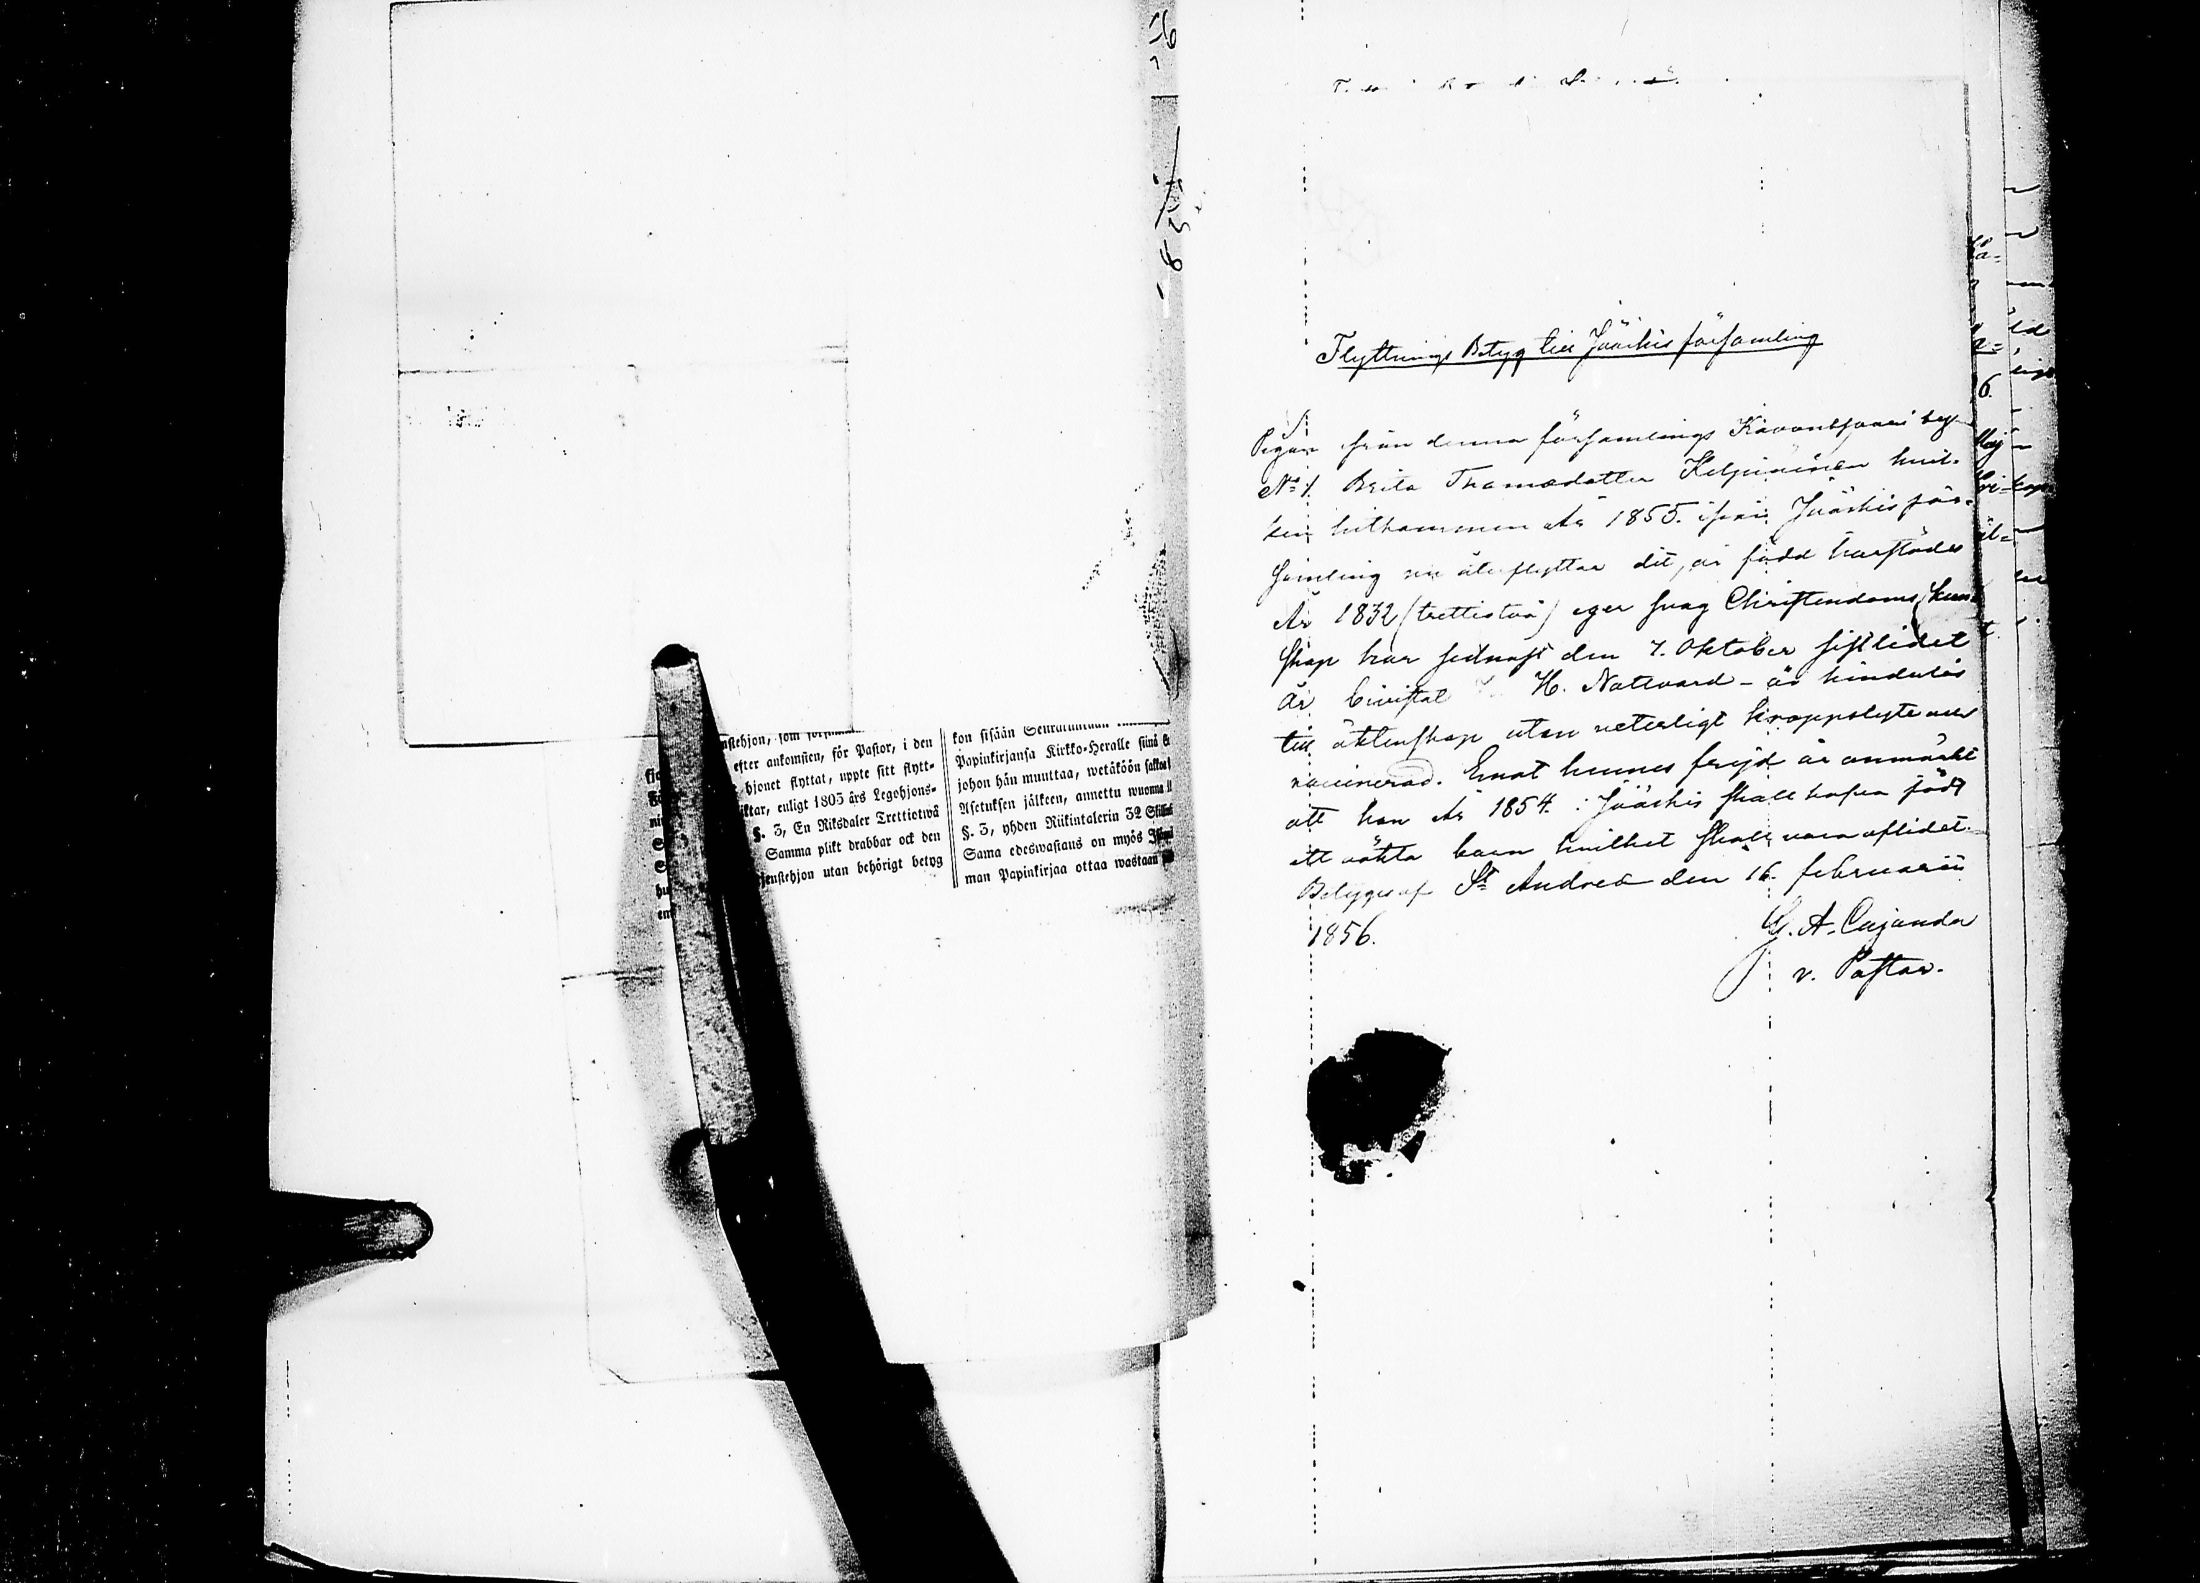 efter ankomsten, för Pastor, i den
hjonet flyttat, uppte sitt flytt-
enligt 1805 års Legohjons-
§. 3, En Riksdaler Trettiotwå
Samma plikt drabbar ock den
utan behörigt betyg
kon sisään
Papinkirjansa Kirkko-Heralle siinä
johon hän muuttaa, wetäköön
Asetuksen jälkeen, annettu wuonna
§. 3, yhden Riikintalerin 32
Sama edeswastaus on myös
man Papinkirjaa ottaa wastaan
Flyttnings Betyg till Jääskis församling
Pigan från denna församlings by
No 1. Brita Thomasdotter hvil-
ken hitkommen År 1855. ifrån Jääskis för-
samling nu återflyttar dit, är född därstädes
År 1832 (trettiotvå) eger svag Christendoms kun
skap har sednast den 7. Oktober sistlidet
år bivistat H. Nattvard - är hinderlös
till äktenskap utan veterligt kroppslyte och
vaccinerad. Emot hennes frejd är anmärkt
att hon År 1854. i Jääskis skall hafva född
ett oäkta barn hvilket skall vara aflidet.
Betygas af St Andreæ den 16. februarii
1856.
G. A. Cajander
v. Pastor.